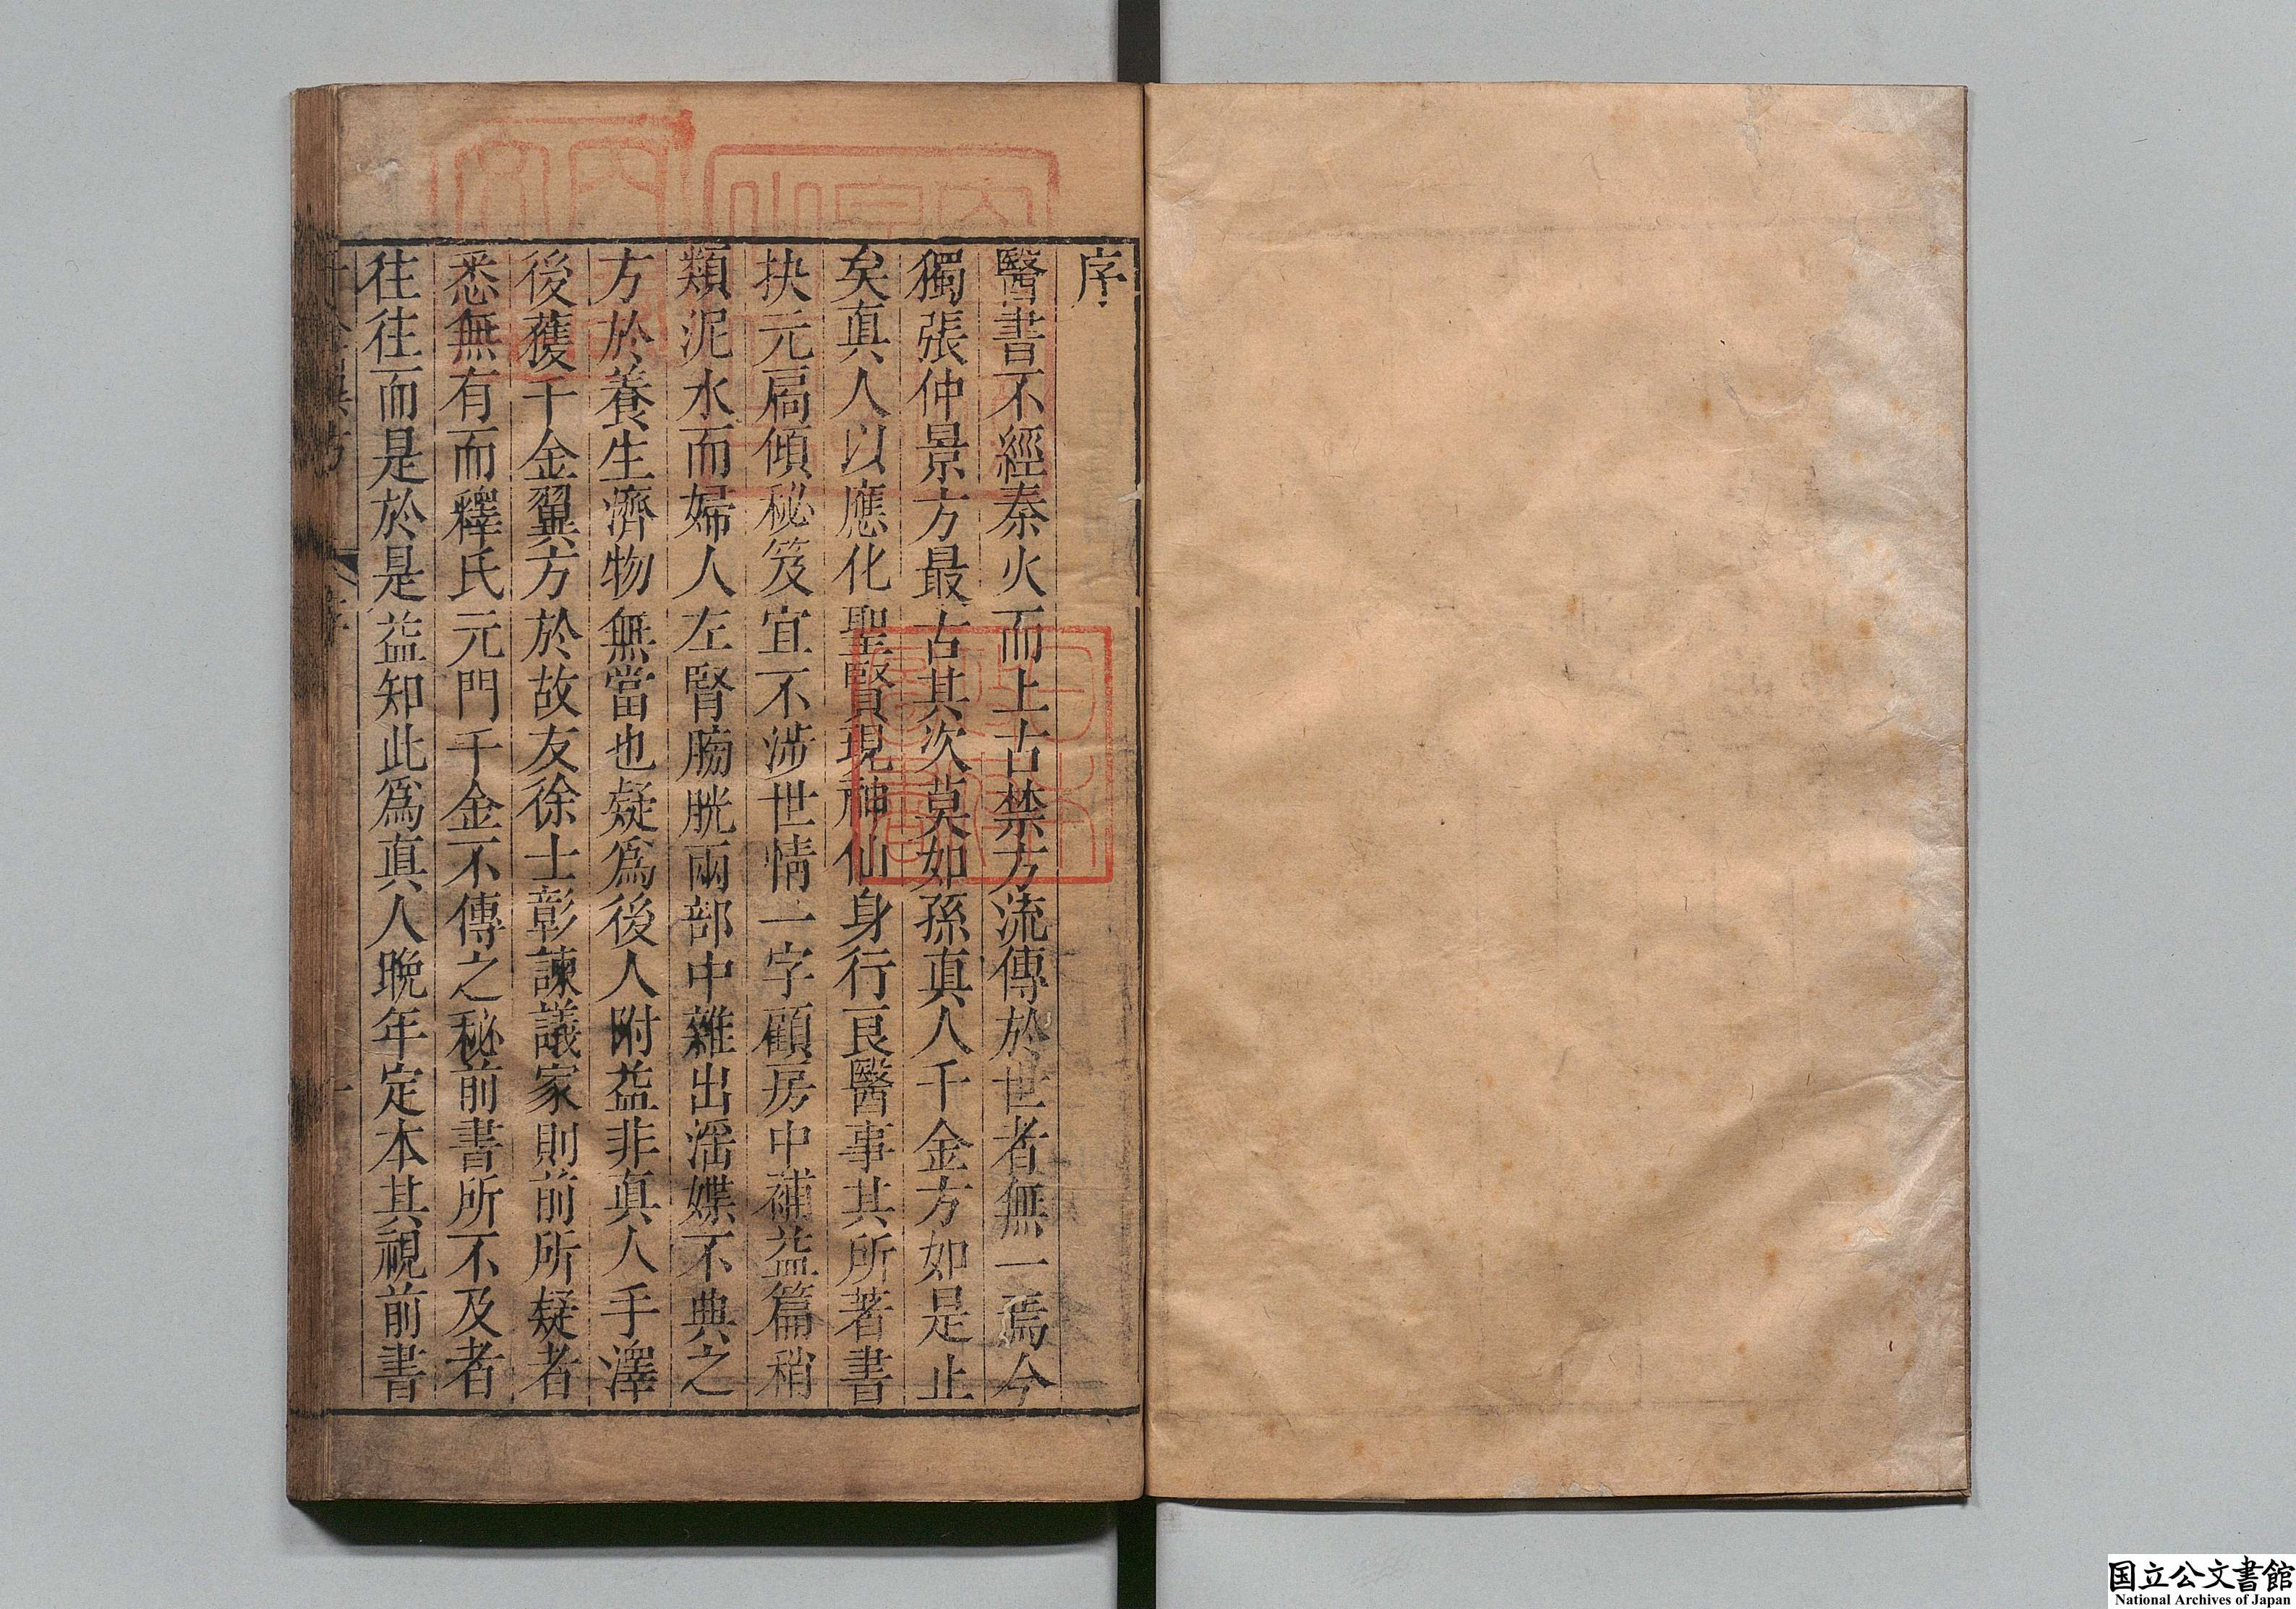 序
醫書不經秦火而上古禁方流傳於世者無一焉今
獨張仲景方最古其次莫如孫真人千金方如是止
矣真人以應化聖賢現神仙身行艮醫事其所著書
抉元扃傾秘笈宜不涉世情一字顧房中補益篇稍
類泥水而婦人左腎膓胱兩部中雜出滛媟不典之
方於養生濟物無當也疑爲後人附益非真人手澤
後獲千金翼方於故友徐士彰諫議家則前所疑者
悉無有而釋氏元門千金不傳之秘前書所不及者
往往而是於是益知此爲真人晩年定本其視前書
国立公文書館
National Archives of Japan